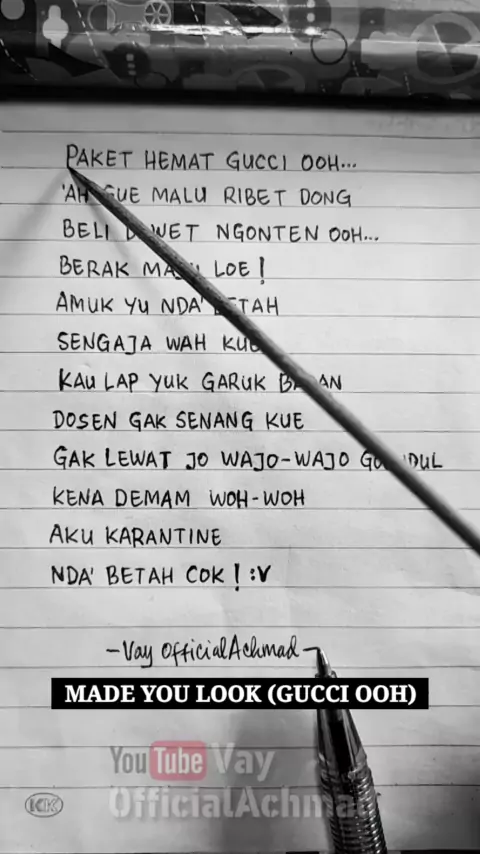 PAKET HEMAT GUCCI OOH...
'AH GUE MALU RIBET DONG
BELI DAWET NGONTEN OOH...
BERAK MAJU LOE!
AMUK YU NDA' BETAH
SENGAJA WAH KUE
KAU LAP YUK GARUK BADAN
DOSEN GAK SENANG KUE
GAK LEWAT JO WAJO-WAJO GONDUL
KENA DEMAM WOH-WOH
AKU KARANTINE
NDA' BETAH COK! :V
-Vay OfficialAchmad-
MADE YOU LOOK (GUCCI OOH)
YouTube Vay
OfficialAchmad
KK